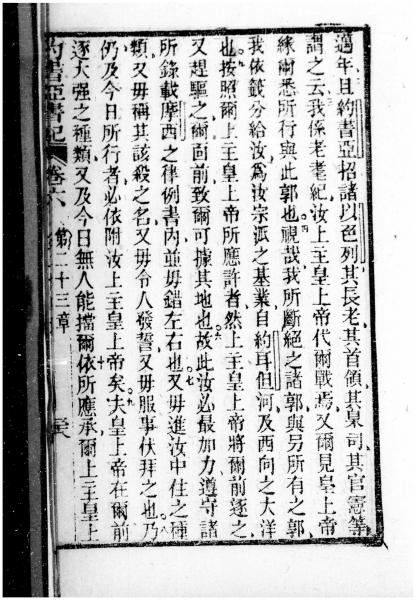 邁年且約書亞招諸以色列其長老其首領其臬司其官憲等
謂之云我係老耄紀汝上主皇上帝代爾戰焉又爾見皇上帝
緣爾悉所行與此郭也覘哉我所斷絕之諸郭與另所有之郭
我依籤分給汝爲汝宗派之基業自約耳但河及西向之大洋
也按照爾上主皇上帝所應許者然上主皇上帝將爾前逐之
又趕驅之爾面前致爾可據其地也故此汝必最加力遵守諸
所錄載摩西之律例書內並毋錯左右也又毋進汝中住之種
類又毋稱其該殺之名又毋令人發誓又毋服事伏拜之也乃
仍及今日所行者必依附汝上主皇上帝矣夫皇上帝在爾前
逐大强之種類又及今日無人能擋爾依所應承爾上主皇上
約書亞書記 卷六 第二十三章